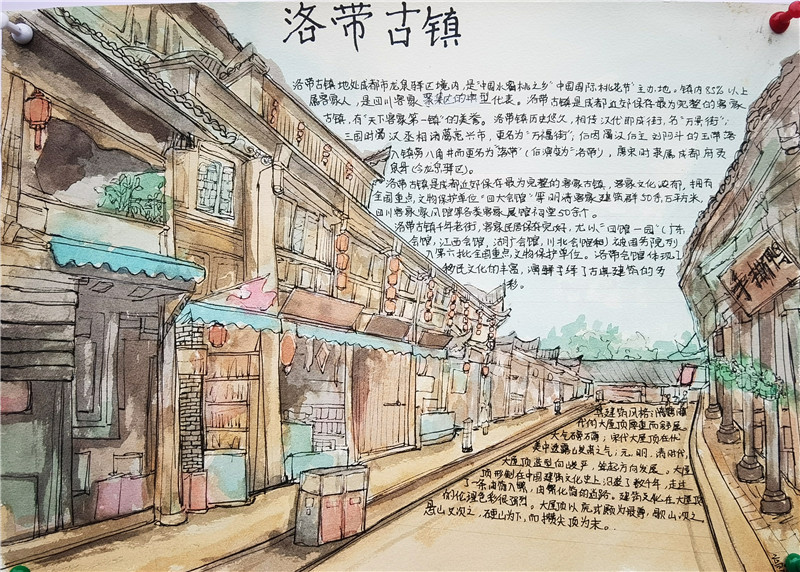 洛带古镇
洛带古镇地处成都市龙泉驿区境内,是"中国水蜜桃之乡""中国国际桃花节"主办地。镇内85%以上
居客家人,是四川客家聚集区的典型代表。洛带古镇是成都近郊保存最为完整的客家
古镇,有"天下客家第一镇"的美誉。洛带镇历史悠久,相传汉代即成街,名"万景街";
三国时蜀汉丞相诸葛亮兴市,更名为"万福街";后因蜀汉后主刘阿斗的玉带落
入镇旁八角井而更名为"洛带"(后演变为"洛带),唐宋时隶属成都府灵
泉县(今龙泉驿区)。
洛带古镇是成都近郊保存最为完整的客家古镇,客家文化浓郁,拥有
全国重点文物保护单位"四大会馆"等明清客家建筑群20余万平方米,
四川客家家风馆等各类客家展馆祠堂50余个。
洛带古镇千年老街,客家民居保存完好,尤以"四馆一园"(广东
会馆,江西会馆,湖广会馆,川北会馆和)被国务院列
入第六批全国重点文物保护单位。洛带会馆体现了
移民文化的丰富,演绎守绎了古典建筑的多
彩。
手撕鸭
其建筑风格:
代的大屋顶厚重而舒展
大气磅礴;宋代大屋顶在优
美中透露
大屋顶造型向
顶形制在中国建筑文化史上,沿袭了数千年,走过
了一条由简入繁,由繁化简的道路。建筑文化在大屋顶
的伦理色彩很强烈。大屋顶以庑式顶为最尊,歇山次之
悬山又次之,硬山为下,而攒尖顶为末。